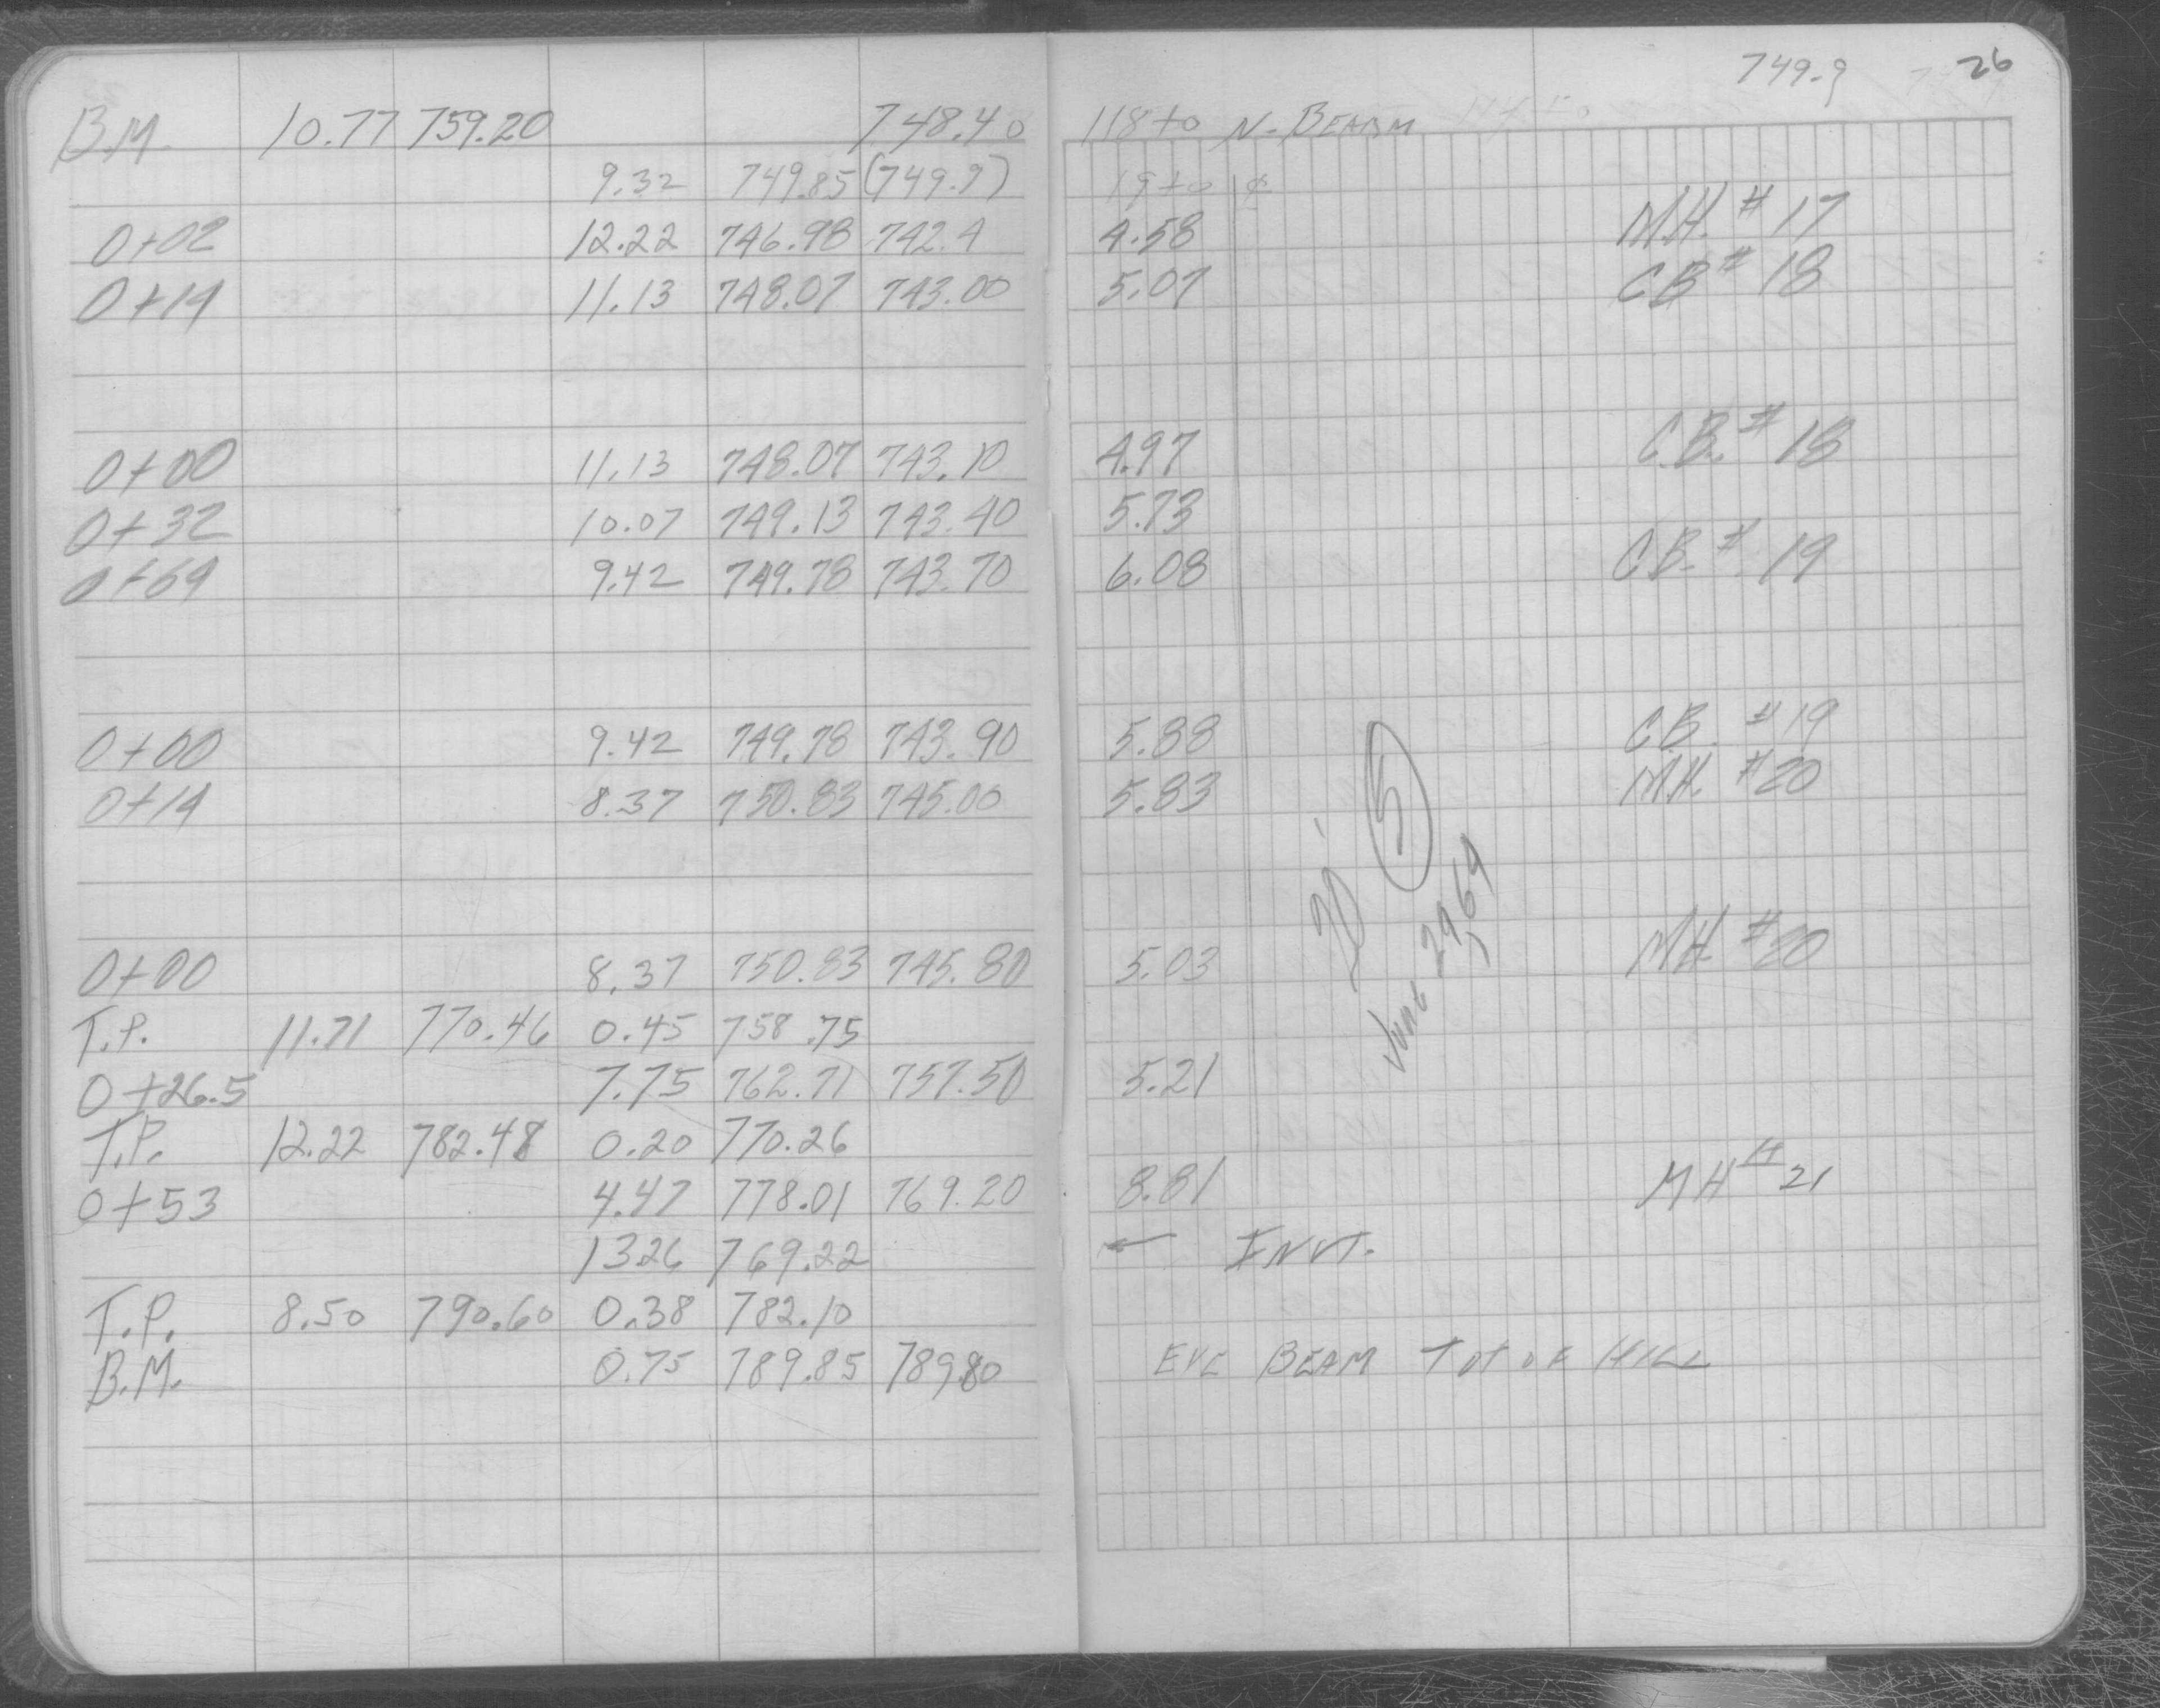 749.9 26
B.M. 10.77 759.20 748.40 118+0 N. BEARM
9.32 749.85 (749.9) 19+0 ¢
0+02 12.22 746.98 742.4 4.58 M.H. # 17
0+14 11.13 748.07 743.00 5.07 CB # 18
0+00 11.13 748.07 743.10 4.97 C.B. # 18
0+32 10.07 749.13 743.40 5.73
0+69 9.42 749.78 743.70 6.08 C.B. # 19
0+00 9.42 749.78 743.90 5.88 C.B. # 19
0+14 8.37 750.83 745.00 5.83 M.H. #20
20' 5
June 29, 64
0+00 8.37 750.83 745.80 5.03 M.H. #20
T.P. 11.71 770.46 0.45 758.75
0+26.5 7.75 762.71 757.50 5.21
T.P. 12.22 782.48 0.20 770.26
0+53 4.47 778.01 769.20 8.81 MH # 21
1326 769.22 ← INVT.
T.P. 8.50 790.60 0.38 782.10
B.M. 0.75 789.85 789.80 BEAM HILL